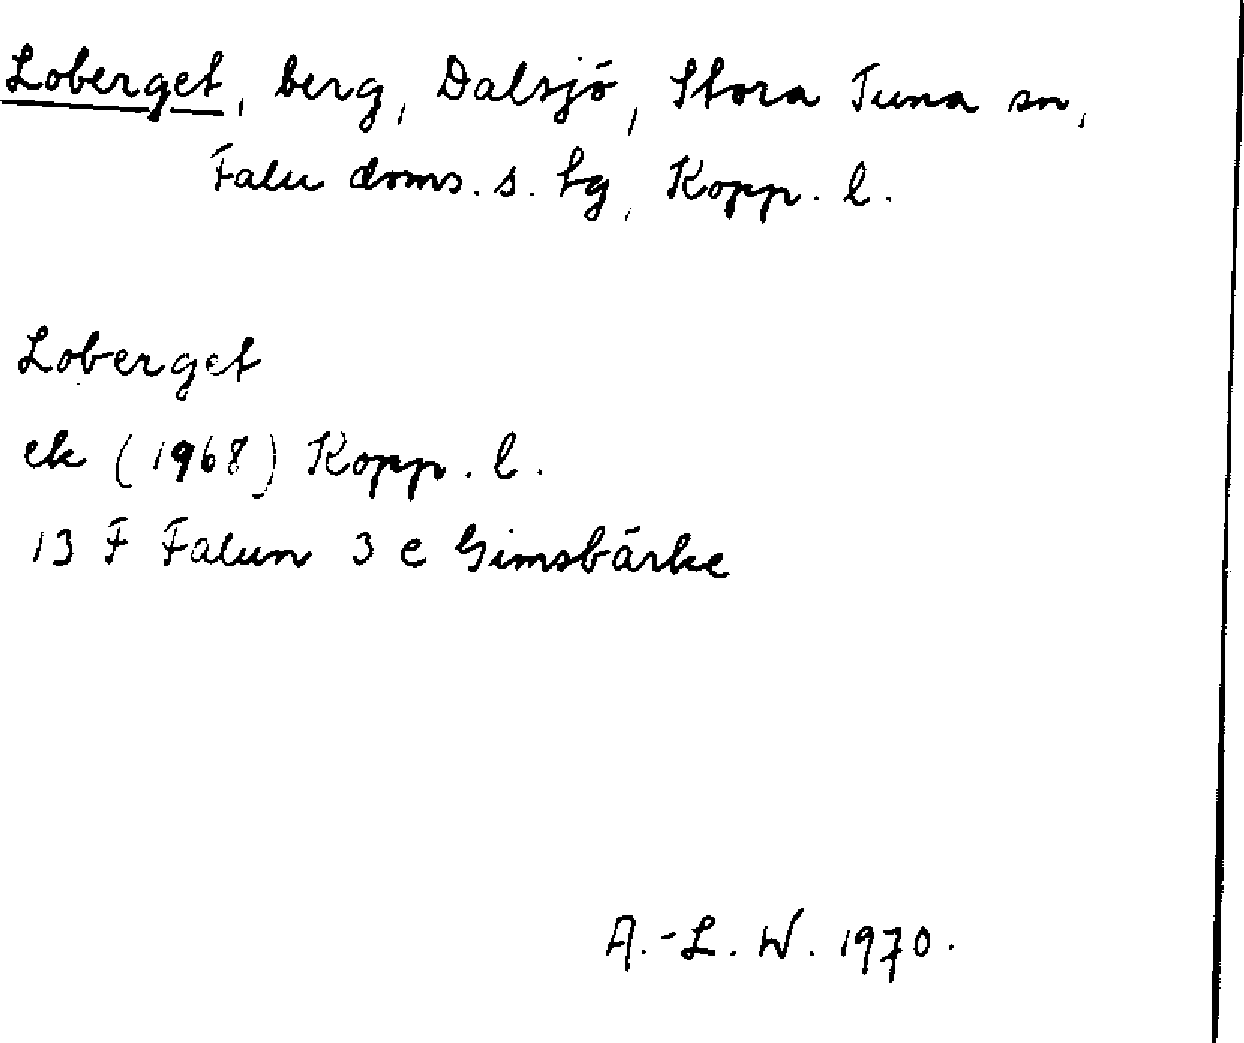 Loberget, berg, Dalsjö, Stora Tuna sn,
Falu doms. s. tg, Kopp. l.
Loberget
ek (1968) Kopp. l.
13 F Falun 3 e Gimsbärke
A.-L. W. 1970.